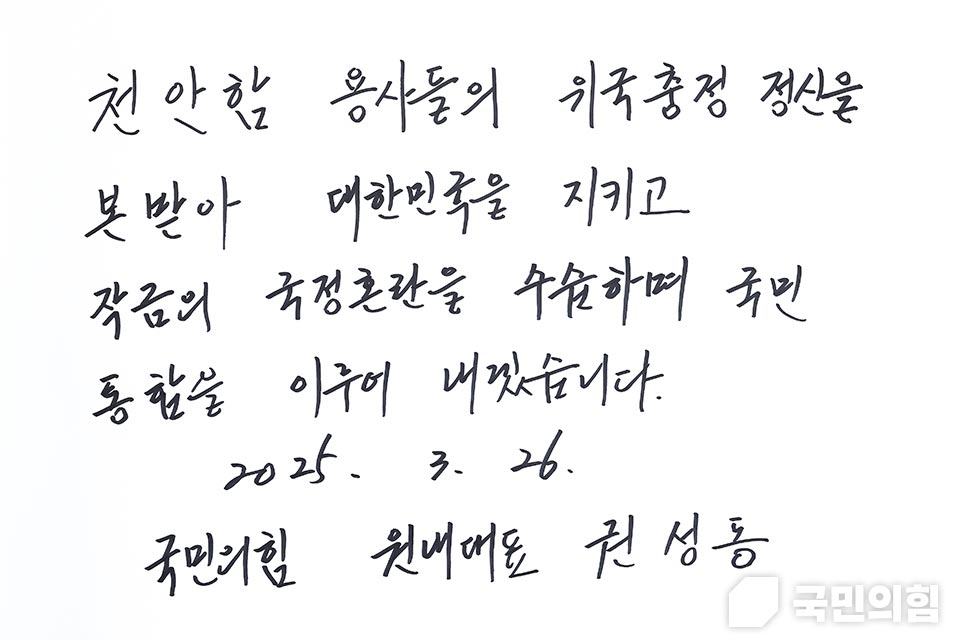 천안함 용사들의 위국충정 정신을
본받아 대한민국을 지키고
작금의 국정혼란을 수습하며 국민
통합을 이루어 내겠습니다.
2025. 3. 26.
국민의힘 원내대표 권성동
국민의힘